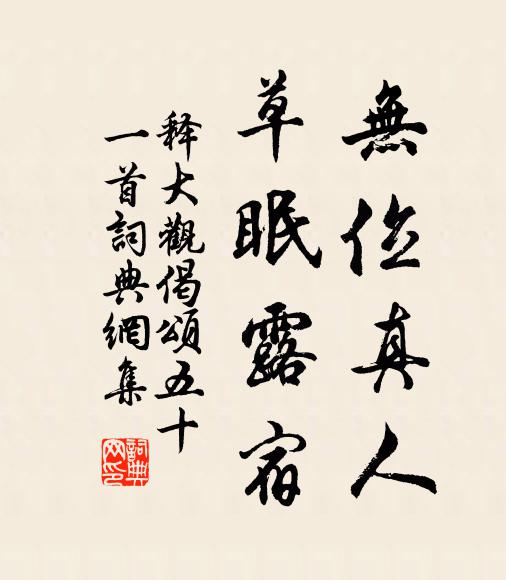 無位真人
草眠露宿
释大觀偈頌五十
一首詞典網集
詞典網印